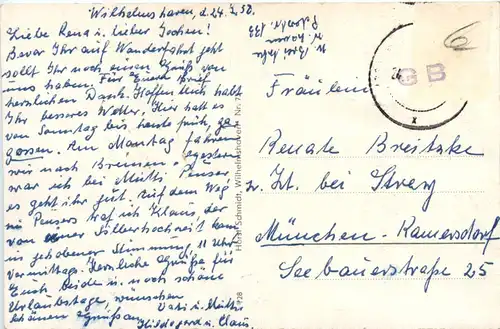 Wilhelmshaven, d. 24.7.58.
Liebe Rena u. lieber Jochen!
Bevor Ihr auf Wanderfahrt geht
sollt Ihr noch einen Gruß von
uns haben. Für Euern Brief
herzlichen Dank. Hoffentlich habt
Ihr besseres Wetter. Hier hat es
von Sonntag bis heute früh, ge-
gossen. Am Montag fahren
wir nach Bremen. Gestern
war ich bei Mutti Penser
es geht ihr gut. Auf dem Weg
zu Pensers traf ich Klaus, der
von einer Silberhochzeit kam
in gehobener Stimmung, 11 Uhr
Vormittags. Herzliche Grüße für
Euch beide u. noch schöne
Urlaubstage, wünschen
Vati u. Mutti
schönen Grüßen
Hildegard u. Claus.
Horst Schmidt, Wilhelmshaven Nr. 7
928
GB
6
Fräulein
Renate Breitzke
z. Zt. bei Strey
München-Ramersdorf
Seebauerstraße 25